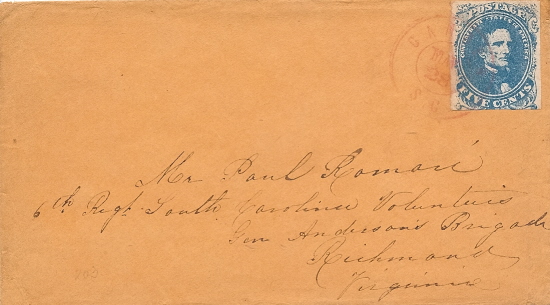 POSTAGE
CONFEDERATE STATES OF AMERICA
FIVE CENTS
CA
S.C
Mr Paul
6th Regt South Carolina Volunteers
Gen Anderson's Brigade
Richmond
Virginia